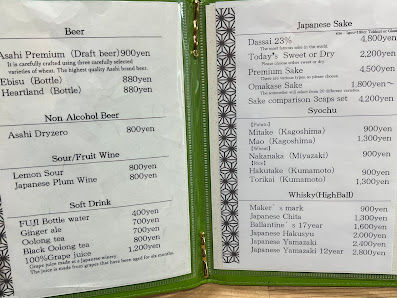 Beer
Asahi Premium (Draft beer) 900yen
It is carefully crafted using three carefully selected
varieties of wheat. The highest quality Asahi brand beer.
Ebisu (Bottle) 880yen
Heartland (Bottle) 880yen
Non Alcohol Beer
Asahi Dryzero 800yen
Sour/Fruit Wine
Lemon Sour 800yen
Japanese Plum Wine 800yen
Soft Drink
FUJI Bottle water 400yen
Ginger ale 700yen
Oolong tea 800yen
Black Oolong tea 800yen
100%Grape juice 1,200yen
Grape juice made at a Japanese winery.
The juice is made from grapes that have been aged for six months
Japanese Sake
Dassai 23% 4,800yen
The most famous sake in the world
Today's Sweet or Dry 2,200yen
Please choose sweet or dry
Premium Sake 4,500yen
There are various types so please choose
Omakase Sake 1,800yen~
The sommelier will select from 20 different varieties
Sake comparison 3cups set 4,200yen
Syochu
[Potato]
Mitake (Kagoshima) 900yen
Mao (Kagoshima) 1,300yen
[Wheat]
Nakanaka (Miyazaki) 900yen
[Rice]
Hakutake (Kumamoto) 900yen
Torikai (Kumamoto) 1,300yen
Whisky(HighBall)
Maker's mark 900yen
Japanese Chita 1,300yen
Ballantine's 17year 1,600yen
Japanese Hakusyu 2,000yen
Japanese Yamazaki 2,400yen
Japanese Yamazaki 12year 2,800yen